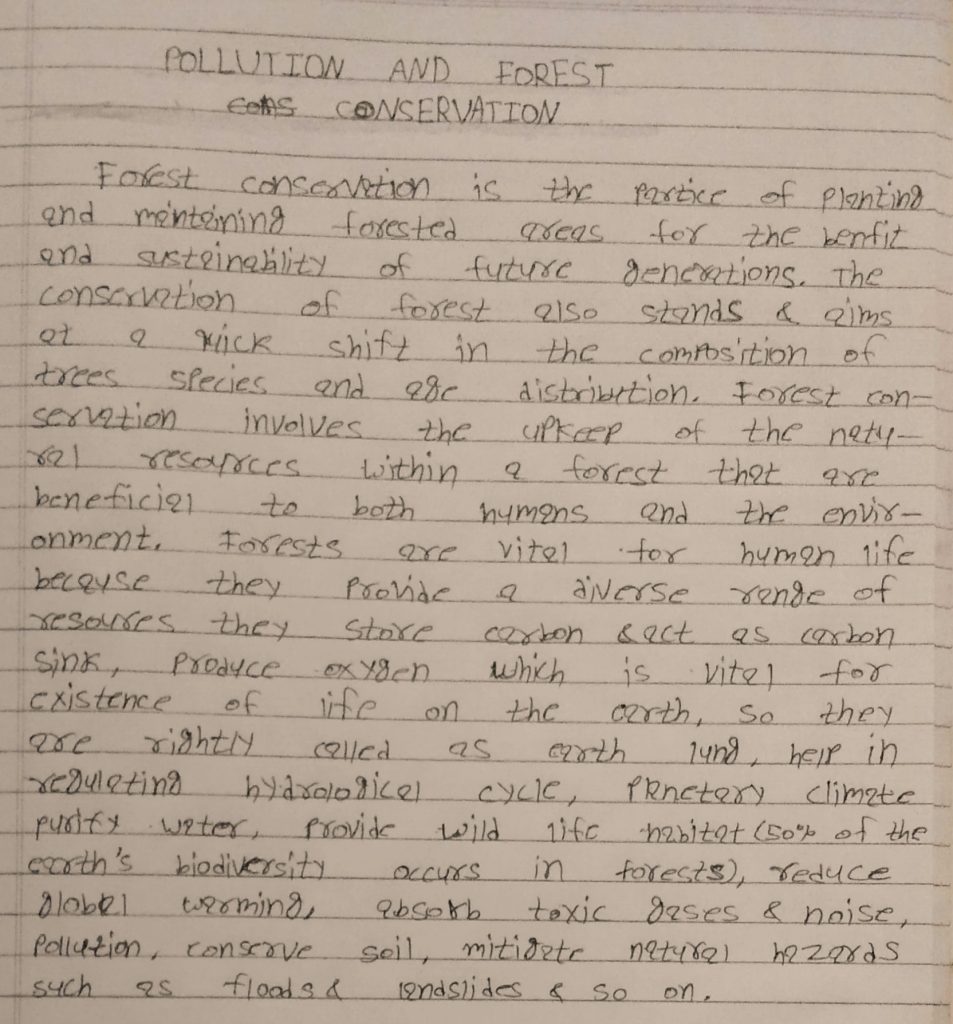 POLLUTION AND FOREST
CONSERVATION
Forest conservation is the partice of planting
and mentaining forested areas for the benfit
and sustainability of future generations. The
conservation of forest also stands & aims
at a quick shift in the composition of
trees species and age distribution. Forest con-
servation involves the upkeep of the natu-
ral resources within a forest that are
beneficial to both humans and the envir-
onment. Forests are vital for human life
because they provide a diverse range of
resources they store carbon & act as carbon
sink, produce oxygen which is vital for
existence of life on the earth, so they
are rightly called as earth lung, help in
regulating hydrological cycle, planetary climate
purify water, provide wild life habitat (50% of the
earth's biodiversity occurs in forests), reduce
global warming, absorb toxic gases & noise,
pollution, conserve soil, mitigate natural hazards
such as floods & landslides & so on.